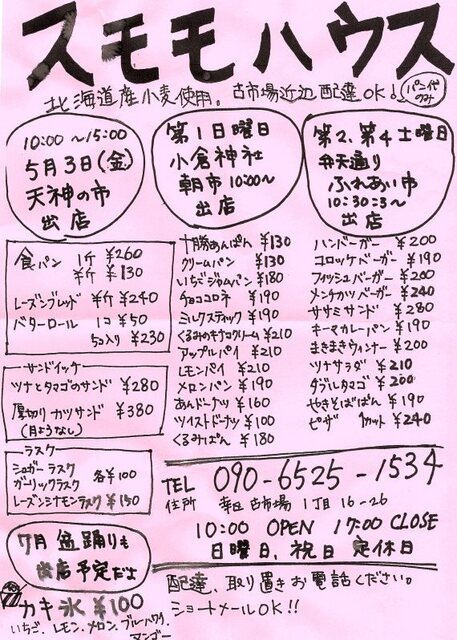 スモモハウス
北海道産小麦使用。古市場近辺配達OK♪
パン代のみ
10:00〜15:00
5月3日(金)
天神の市
出店
第1日曜日
小倉神社
朝市10:00〜
出店
第2、第4土曜日
弁天通り
ふれあい市
10:30〜
出店
食パン 1斤 ¥260
½斤 ¥130
レーズンブレッド ½斤 ¥240
バターロール 1コ ¥50
5コ入り ¥230
サンドイッチ
ツナとタマゴのサンド ¥280
厚切りカツサンド ¥380
(月よう なし)
ラスク
シュガーラスク
ガーリックラスク 各¥100
レーズンシナモンラスク ¥150
7月盆踊りも
出店予定だよ
カキ氷 ¥100
いちご、レモン、メロン、ブルーハワイ、
マンゴー
十勝あんぱん ¥130
クリームパン ¥130
いちごジャムパン ¥180
チョココロネ ¥190
ミルクスティック ¥190
くるみのキナコクリーム ¥210
アップルパイ ¥210
レモンパイ ¥210
メロンパン ¥190
あんドーナツ ¥160
ツイストドーナツ ¥100
くるみぱん ¥180
ハンバーガー ¥200
コロッケバーガー ¥190
フィッシュバーガー ¥200
メンチカツバーガー ¥240
ササミサンド ¥280
キーマカレーパン ¥190
まきまきウィンナー ¥200
ツナサラダ ¥210
ダブルタマゴ ¥200
やきそばぱん ¥190
ピザ 1カット ¥240
TEL 090-6525-1534
住所 幸区古市場1丁目16-26
10:00 OPEN 17:00 CLOSE
日曜日、祝日 定休日
配達、取り置きお電話ください。
ショートメールOK!!